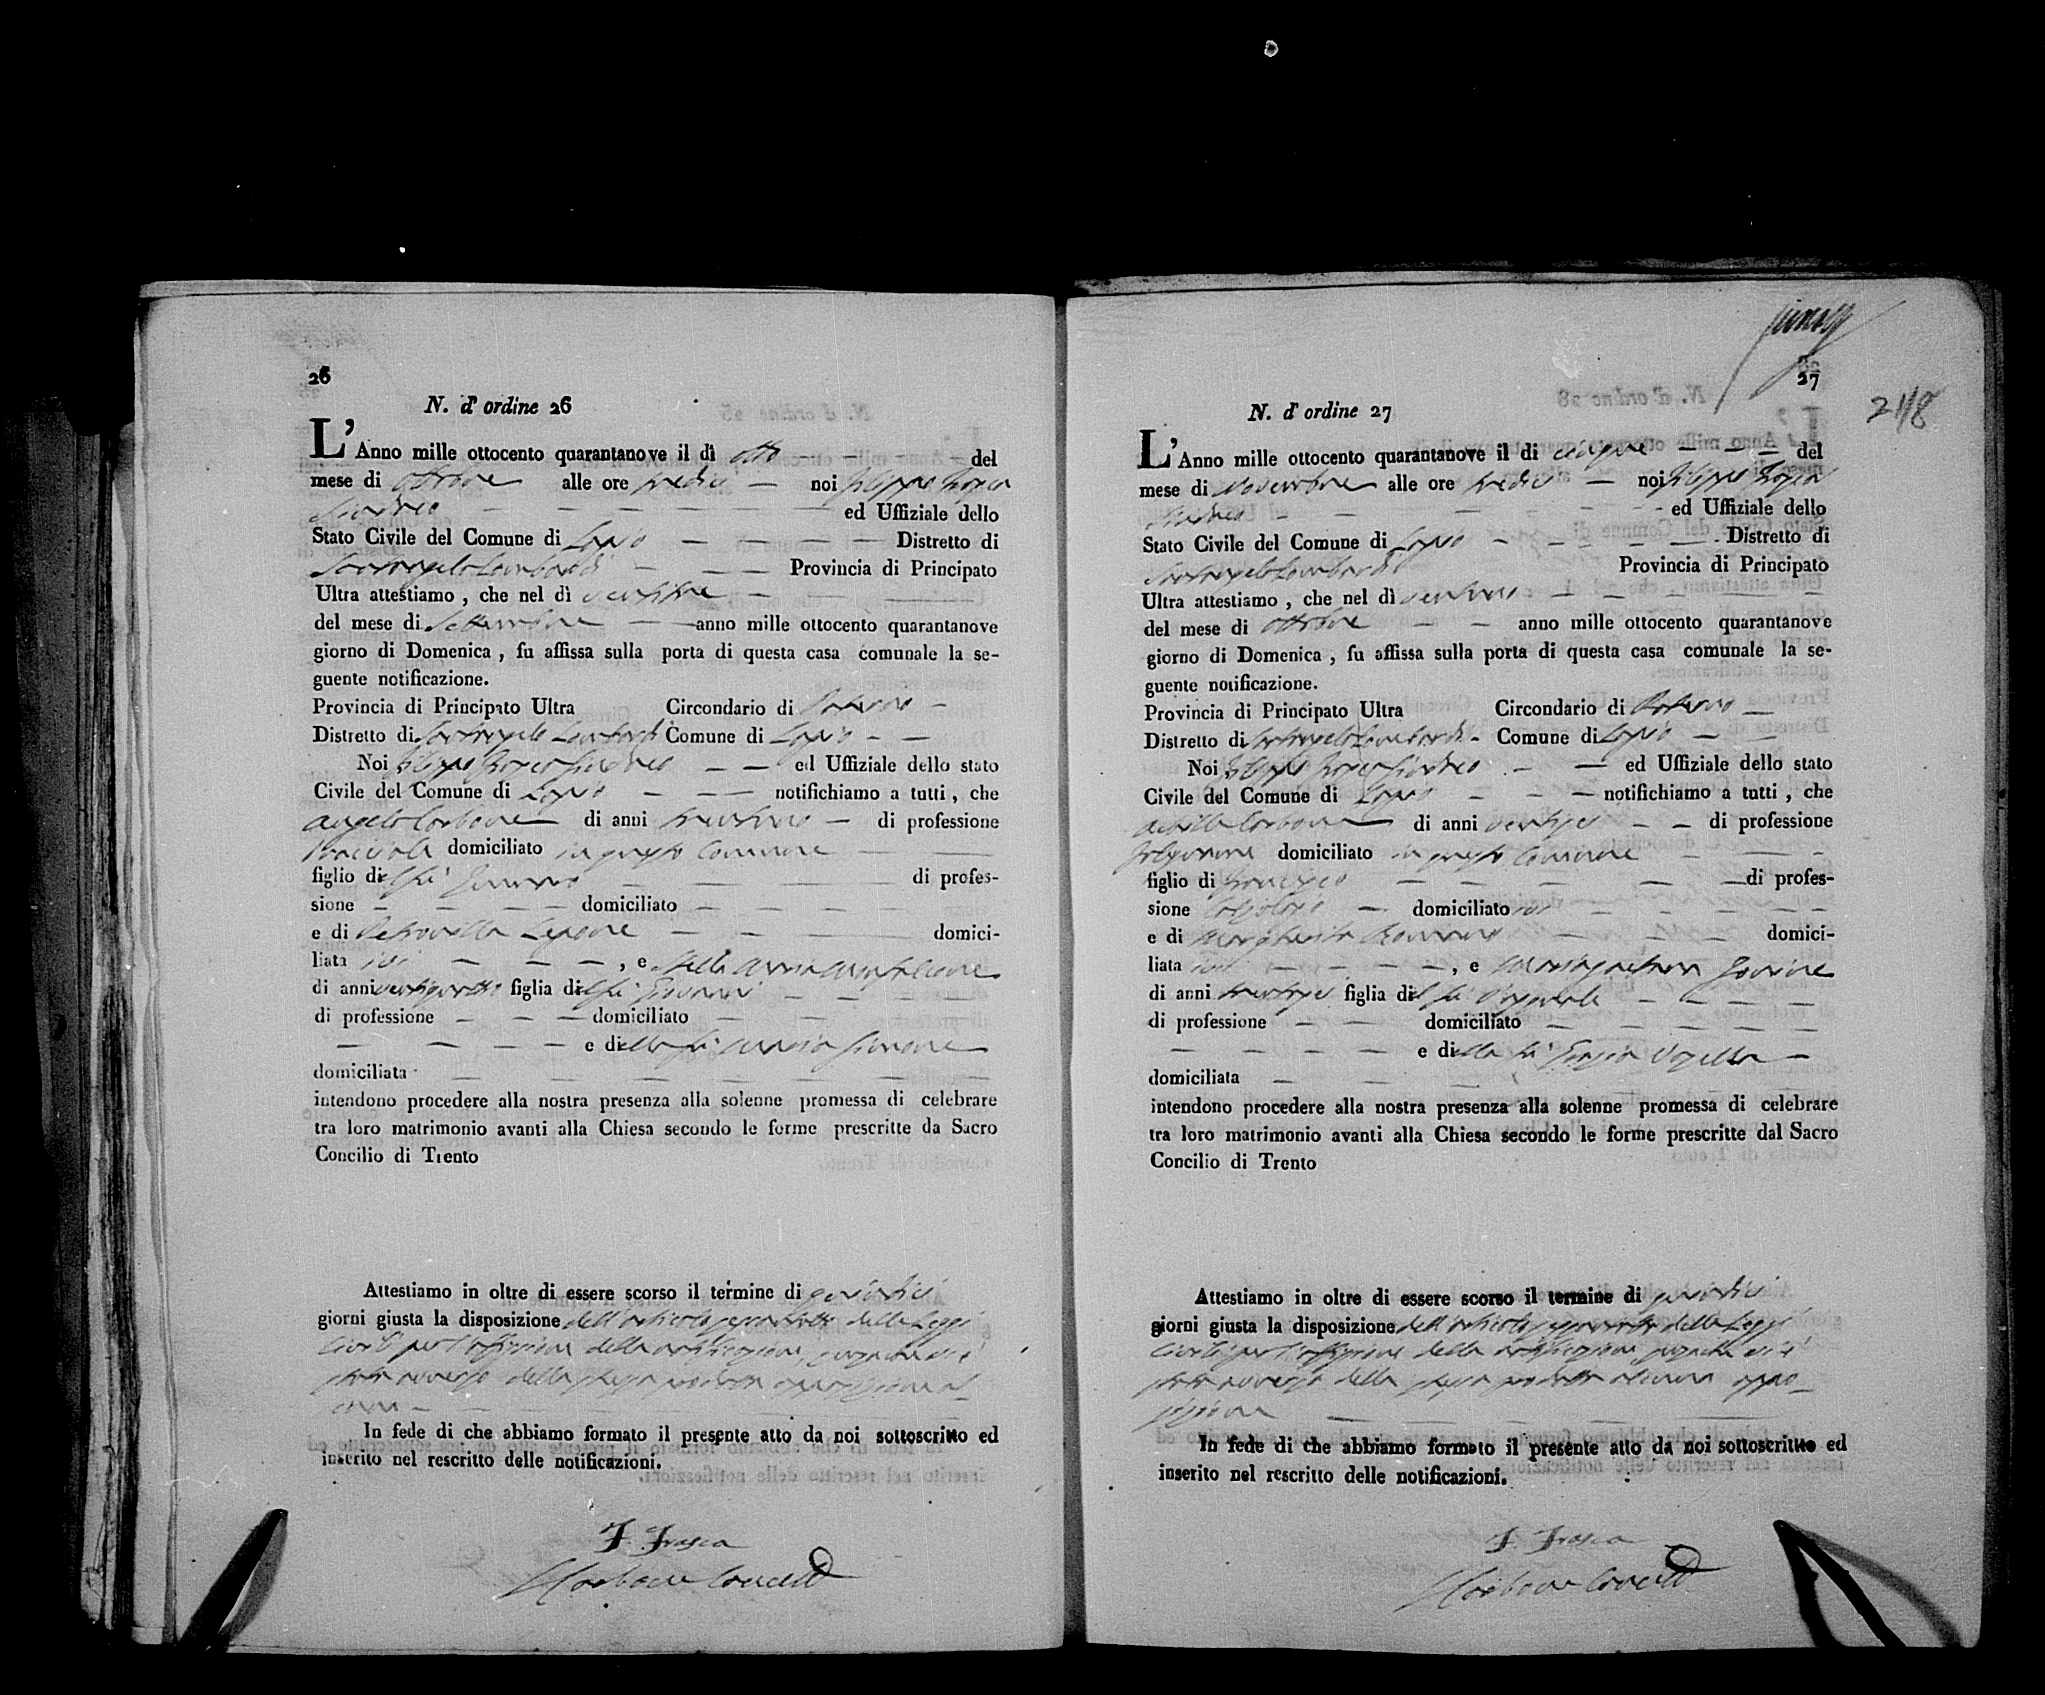 26
N. d' ordine 26
L'Anno mille ottocento quarantanove il dì otto del
mese di ottobre alle ore tredici noi Filippo Frasca
Sindaco ed Uffiziale dello
Stato Civile del Comune di Lapio Distretto di
Santangelo Lombardi Provincia di Principato
Ultra attestiamo , che nel dì ventitre
del mese di Settembre anno mille ottocento quarantanove
giorno di Domenica , fu affissa sulla porta di questa casa comunale la se-
guente notificazione.
Provincia di Principato Ultra Circondario di Paterno
Distretto di Santangelo Lombardi Comune di Lapio
Noi Filippo Frasca Sindaco ed Uffiziale dello stato
Civile del Comune di Lapio notifichiamo a tutti , che
Angelo Carbone di anni trentuno di professione
domiciliato in questo Comune
figlio del fu di profes-
sione domiciliato
e di Petronilla Lepore domici-
liata ivi , e
di anni ventiquattro figlia del fu Giovanni
di professione domiciliato
e della fu Maria
domiciliata
intendono procedere alla nostra presenza alla solenne promessa di celebrare
tra loro matrimonio avanti alla Chiesa secondo le forme prescritte da Sacro
Concilio di Trento
Attestiamo in oltre di essere scorso il termine di quindici
giorni giusta la disposizione dell'articolo settantotto delle Leggi
Civili per l'affissione della notificazione, senza che vi è
stata avverso della stessa prodotta opposizione al-
cuna
In fede di che abbiamo formato il presente atto da noi sottoscritto ed
inserito nel rescritto delle notificazioni.
F. Frasca
Carbone
27
218
N. d' ordine 27
L'Anno mille ottocento quarantanove il di cinque del
mese di Novembre alle ore tredici noi Filippo Frasca
Sindaco ed Uffiziale dello
Stato Civile del Comune di Lapio Distretto di
Santangelo Lombardi Provincia di Principato
Ultra attestiamo , che nel dì ventuno
del mese di ottobre anno mille ottocento quarantanove
giorno di Domenica , fu affissa sulla porta di questa casa comunale la se-
guente notificazione.
Provincia di Principato Ultra Circondario di Paterno
Distretto di Santangelo Lombardi Comune di Lapio
Noi Filippo Frasca Sindaco ed Uffiziale dello stato
Civile del Comune di Lapio notifichiamo a tutti , che
Achille Carbone di anni ventisei di professione
Falegname domiciliato in questo Comune
figlio di Francesco di profes-
sione Calzolaio domiciliato ivi
e di Margherita Romano domici-
liata ivi , e
di anni trentasei figlia del fu Pasquale
di professione domiciliato
e della fu
domiciliata
intendono procedere alla nostra presenza alla solenne promessa di celebrare
tra loro matrimonio avanti alla Chiesa secondo le forme prescritte dal Sacro
Concilio di Trento
Attestiamo in oltre di essere scorso il termine di quindici
giorni giusta la disposizione dell'articolo settantotto delle Leggi
Civili per l'affissione della notificazione, senza che vi è
stata avverso della stessa prodotta alcuna oppo-
sizione
In fede di che abbiamo formato il presente atto da noi sottoscritto ed
inserito nel rescritto delle notificazioni.
F. Frasca
Carbone